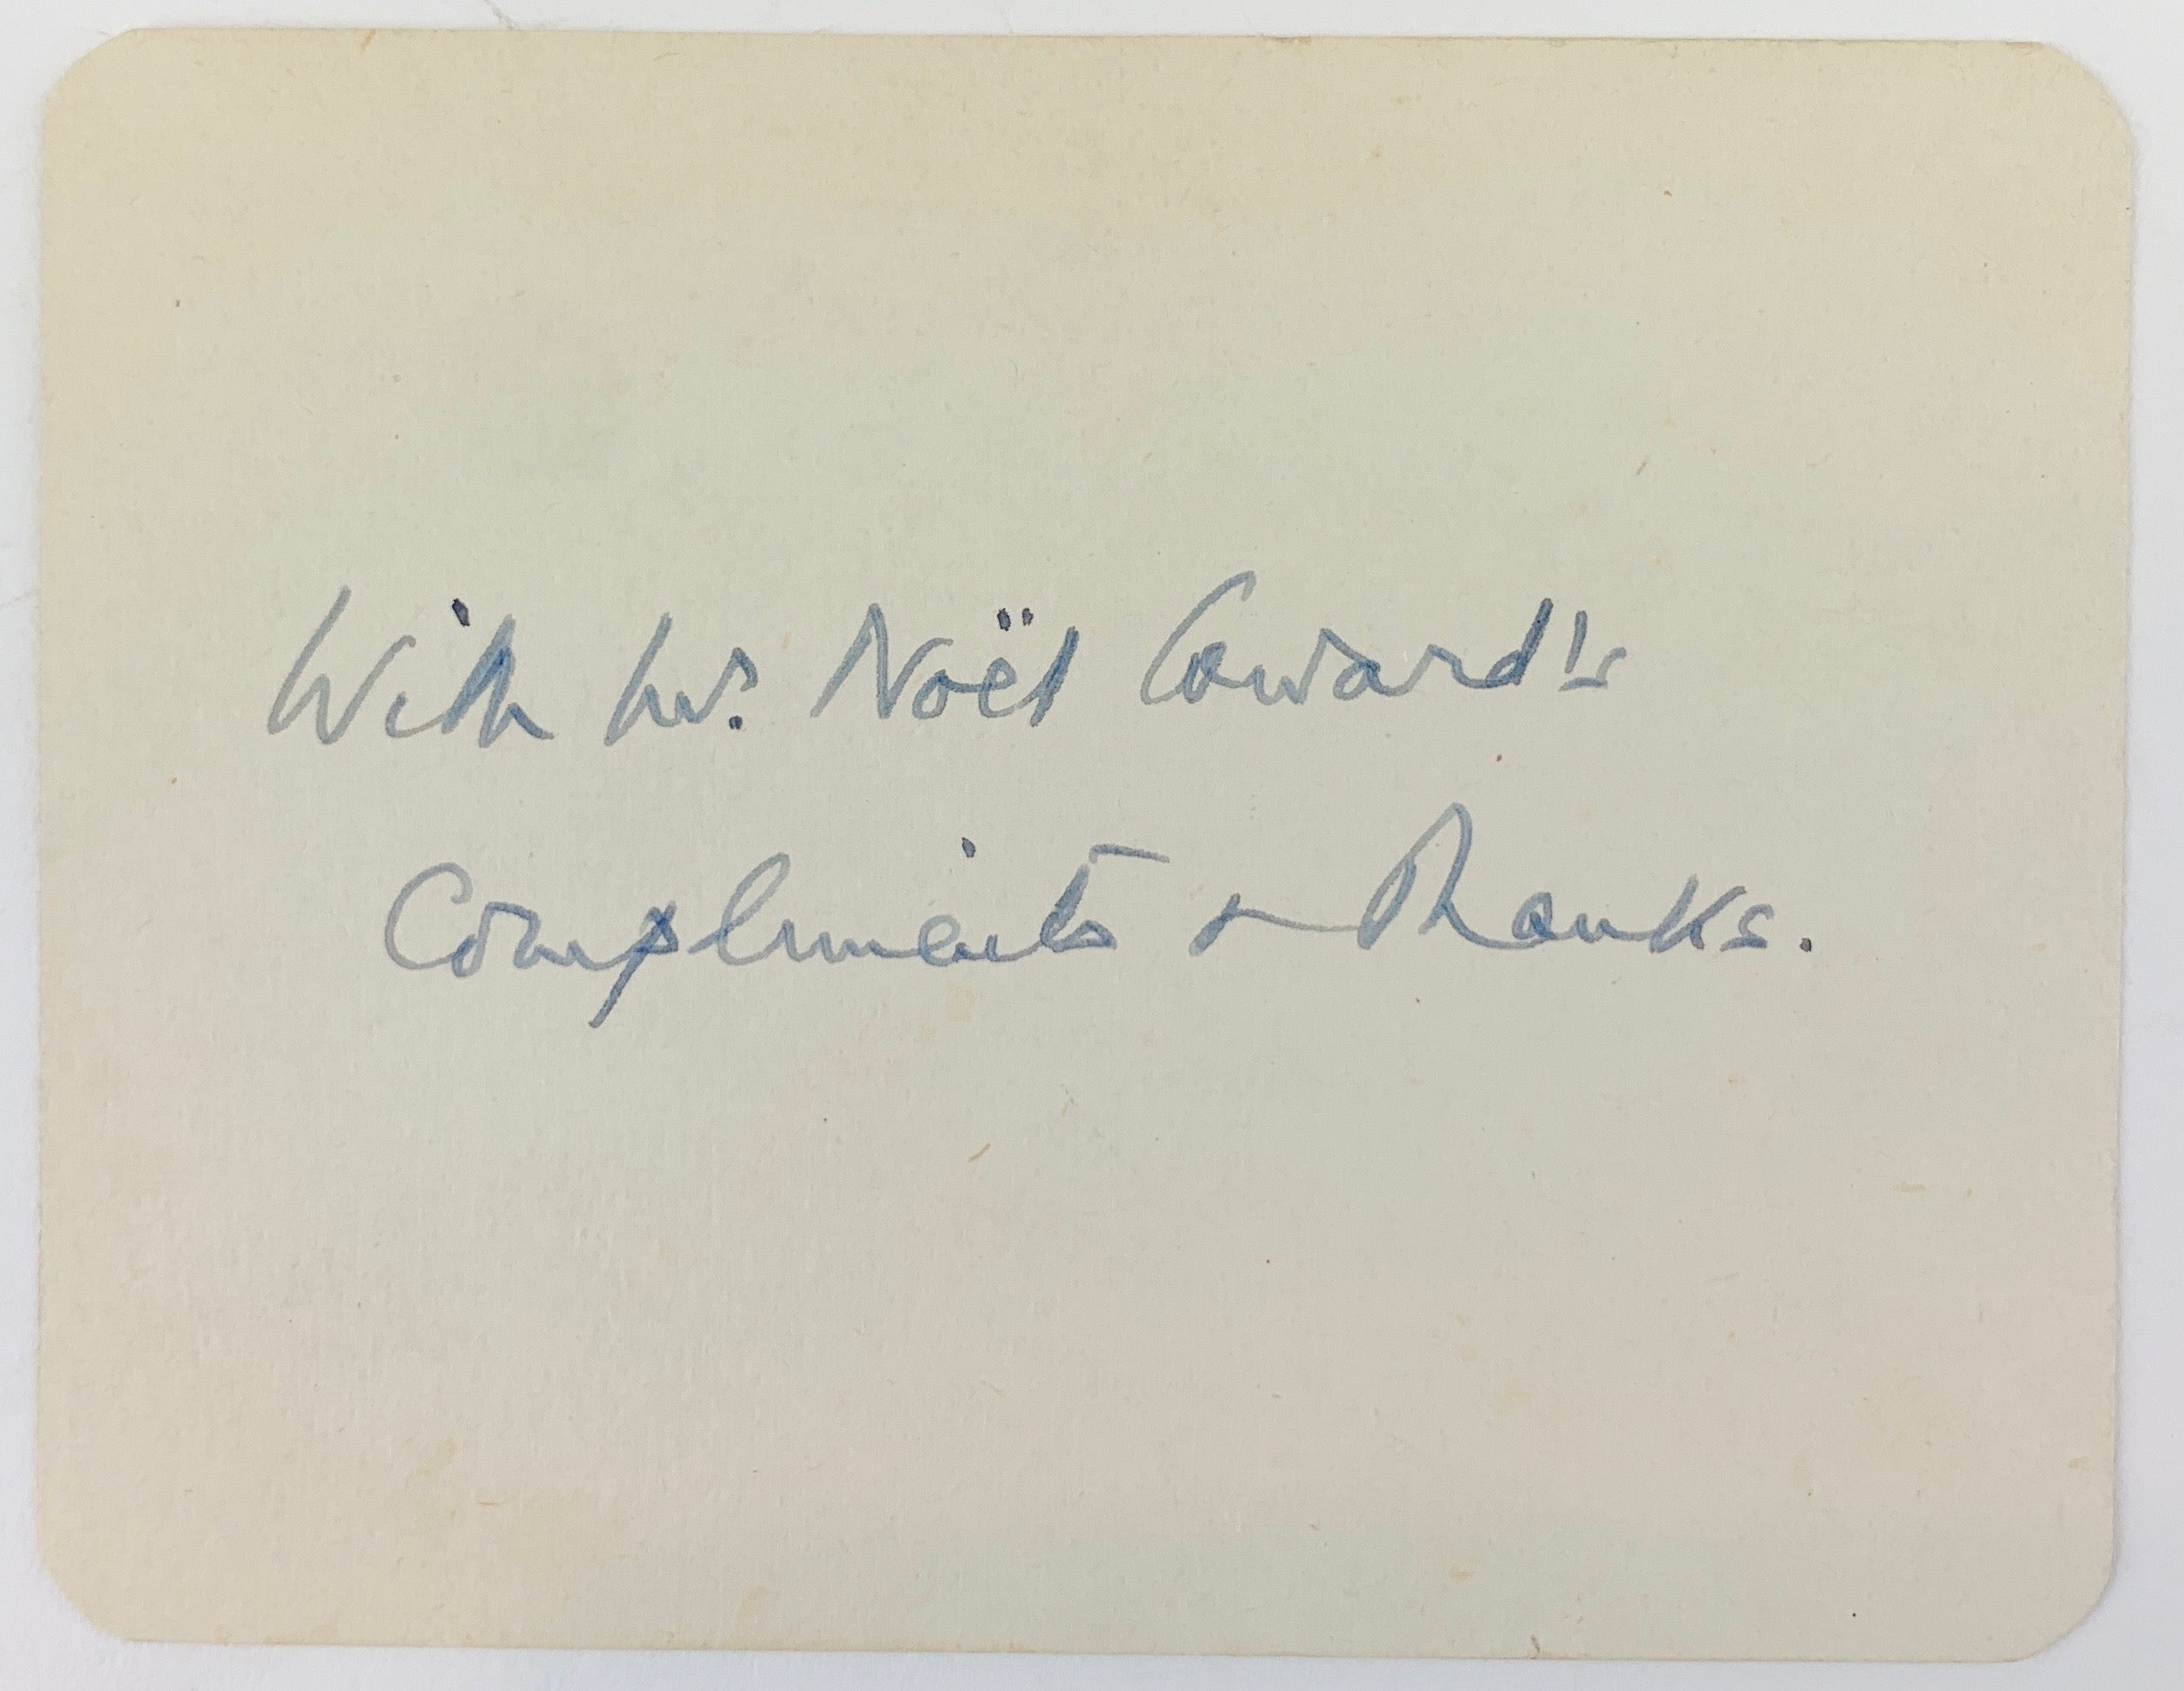 With Mr. Noël Coward's
Compliments & Thanks.